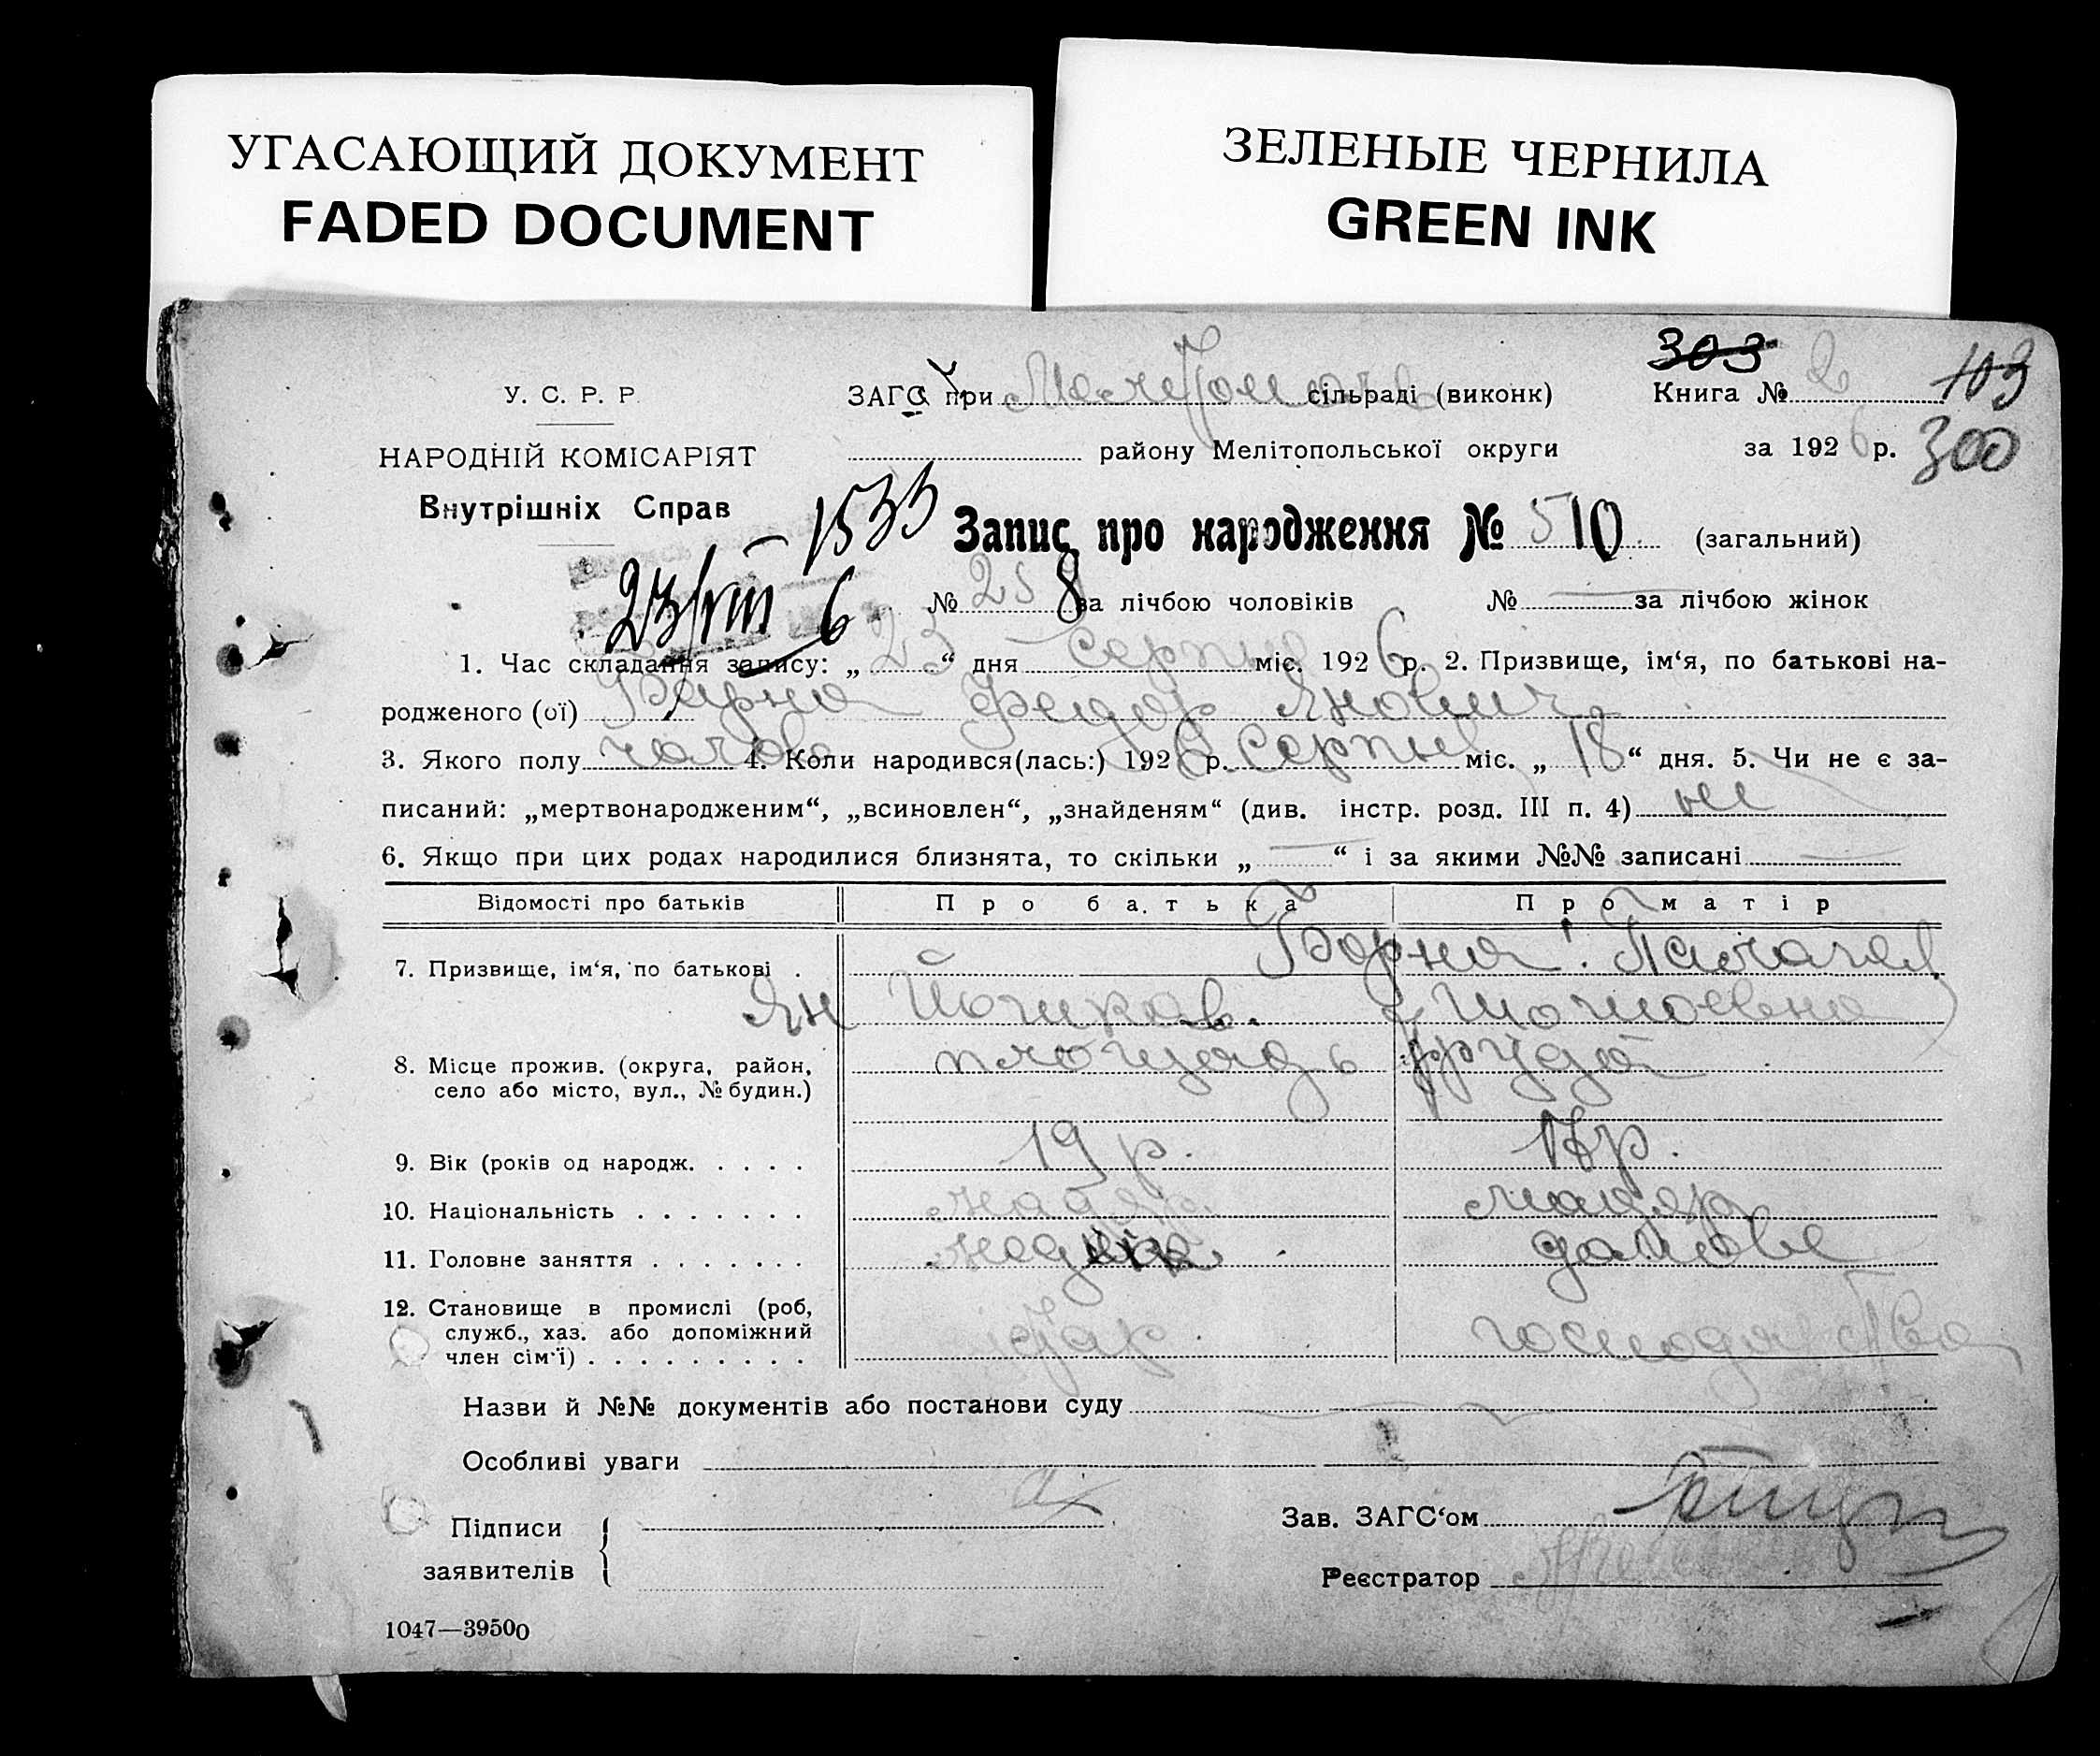 УГАСАЮЩИЙ ДОКУМЕНТ
FADED DOCUMENT
ЗЕЛЕНЫЕ ЧЕРНИЛА
GREEN INK
303
103
300
У. С. Р. Р.
НАРОДНІЙ КОМІСАРІЯТ
Внутрішніх Справ
ЗАГС при сільраді (виконк) Книга № 2
району Мелітопольської округи за 1926 р.
1533
23/VIII 6
Запис про народження № 510 (загальний)
№ 258 за лічбою чоловіків № — за лічбою жінок
1. Час складання запису: „23“ дня серпня міс. 1926 р. 2. Призвище, ім‘я, по батькові на-
родженого (ої) Федор Янович
3. Якого полу чолов 4. Коли народився(лась:) 1926 р. серпня міс. „18“ дня. 5. Чи не є за-
писаний: „мертвонародженим“, „всиновлен“, „знайденям“ (див. інстр. розд. III п. 4) ні
6. Якщо при цих родах народилися близнята, то скільки „—“ і за якими №№ записані —
Відомості про батьків Про батька Про матір
7. Призвище, ім‘я, по батькові .
Ян
8. Місце прожив. (округа, район, площадь Труда
село або місто, вул., № будин.)
9. Вік (років од народж. . . . . 19 р. 17 р.
10. Національність . . . . . . . мадяр. мадяр
11. Головне заняття . . . . . . . домове
12. Становище в промислі (роб, господарство
служб., хаз. або допоміжний
член сім‘ї) . . . . . . . . .
Назви й №№ документів або постанови суду
Особливі уваги
Підписи
заявителів
Зав. ЗАГС‘ом
Реєстратор
1047—39500